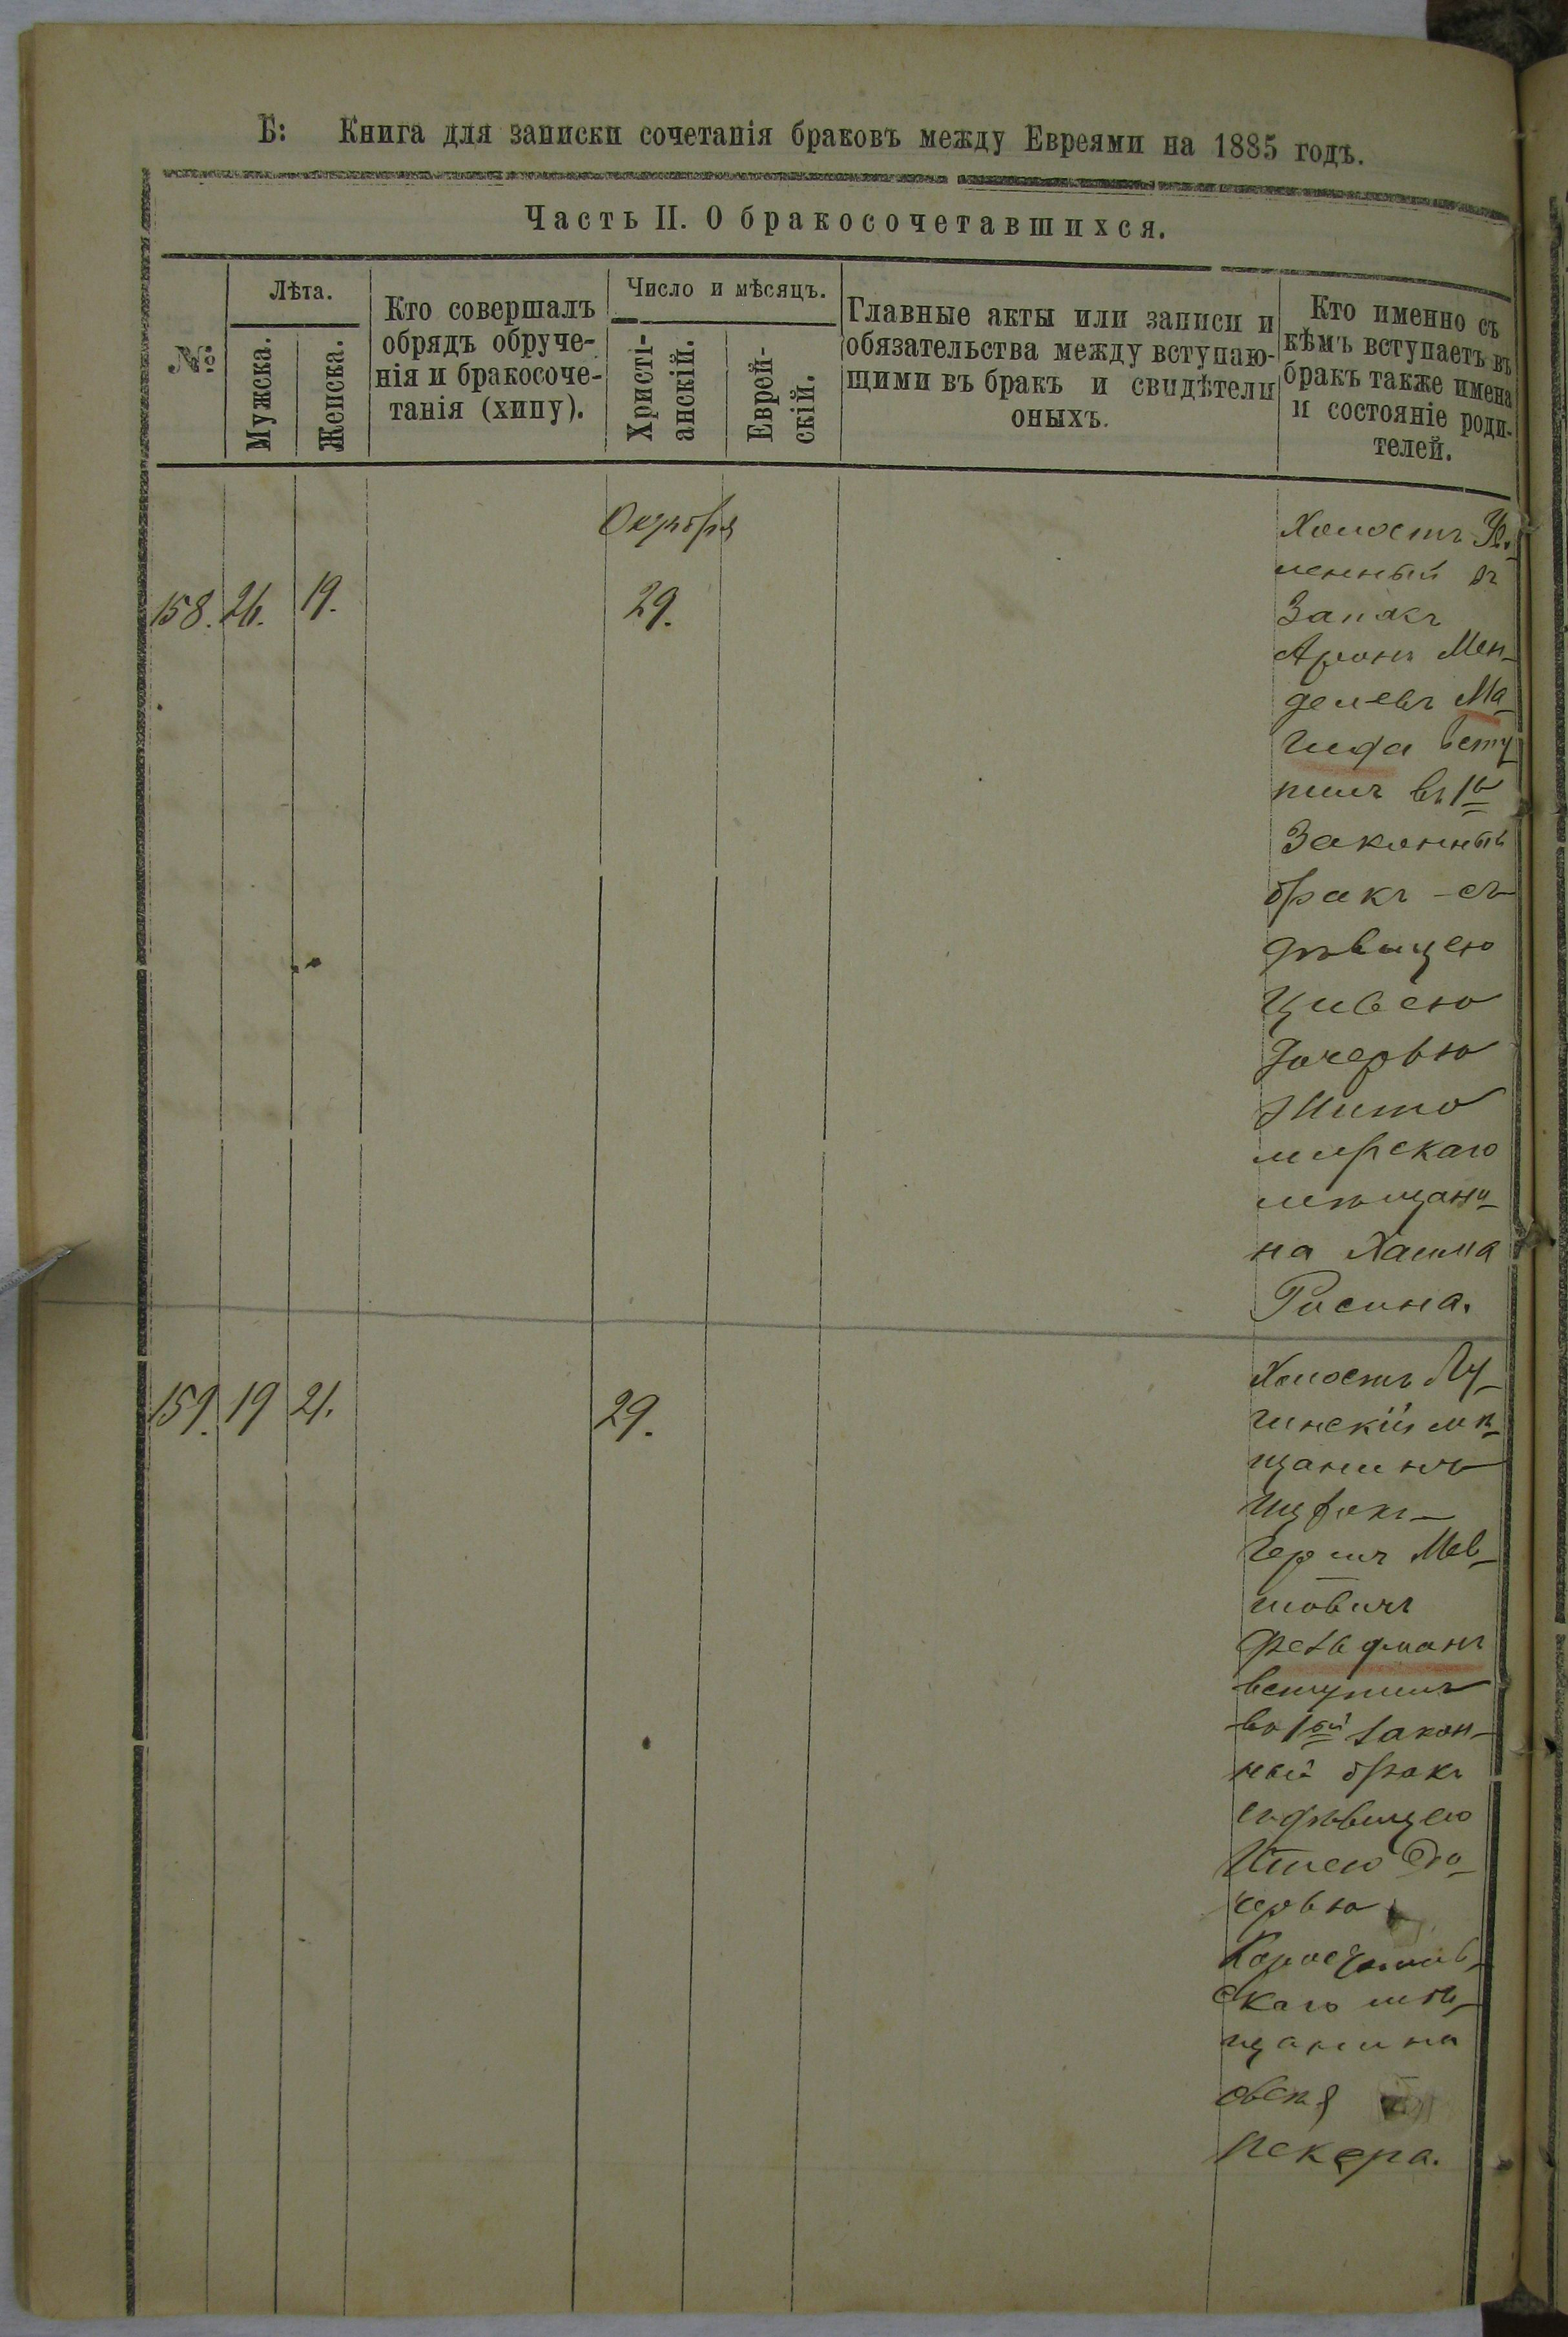 Б: Книга для записки сочетанія браковъ между Евреями на 1885 годъ.
Часть II. О бракосочетавшихся.
№
Лѣта.
Мужска.
Женска.
Кто совершалъ
обрядъ обруче-
нія и бракосоче-
танія (хипу).
Число и мѣсяцъ.
Христі-
анскій.
Еврей-
скій.
Главные акты или записи и
обязательства между вступаю-
щими въ бракъ и свидѣтели
оныхъ.
Кто именно съ
кѣмъ вступаетъ въ
бракъ также имена
и состояніе роди-
телей.
Октября
158. 26. 19. 29.
Холостъ
ленный въ
Запасъ
Аронъ Мен-
делевъ Ма-
гида всту
пилъ въ 1й
Законный
бракъ съ
дѣвицею
Цивею
Дочерью
Жито
мирскаго
мѣщани-
на Хаима
Росина.
159. 19 21. 29.
Холостъ Лу-
гинскій мѣ-
щанинъ
Ицхокъ-
Гершъ Мев-
шовичъ
Фельдманъ
вступилъ
во 1ый закон-
ный бракъ
съ дѣвицею
Итею До-
черью
скаго мѣ-
щанина
Овсея
Пекера.